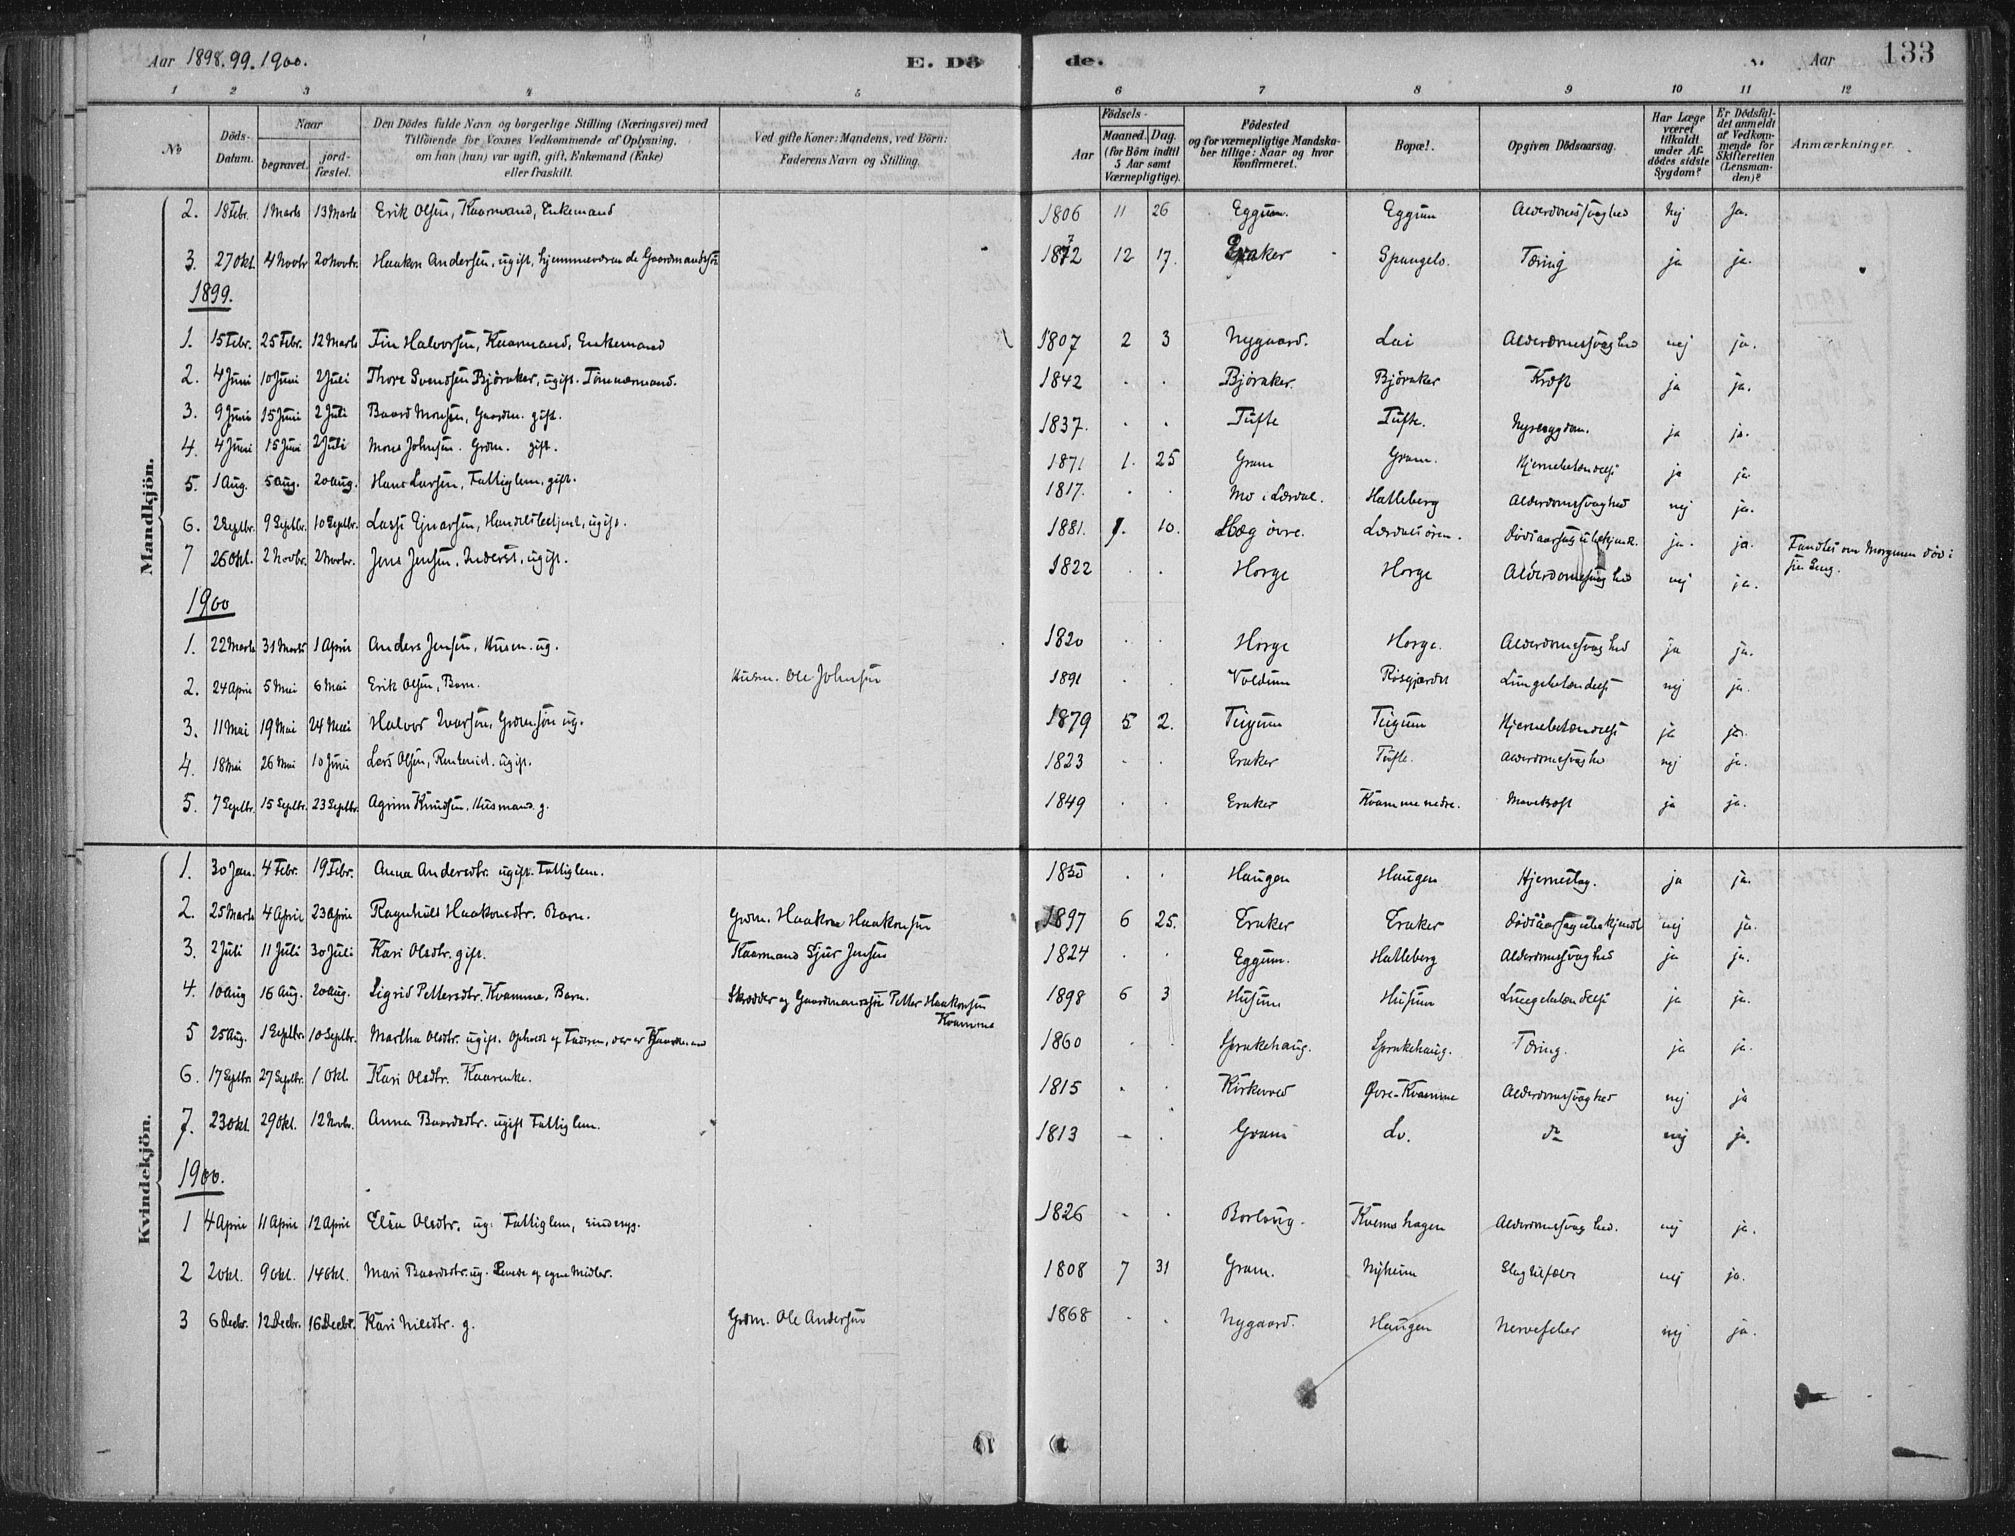 Aar 1898.99.1900. E. Dö de. Aar 133
1 2 3 4 5 6 7 8 9 10 11 12
No Döds-Datum. Naar begravet. jord-fæstet.
Den Dödes fulde Navn og borgerlige Stilling (Næringsvei) med Tilföiende for Voxnes Vedkommende af Oplysning, om han (hun) var ugift, gift, Enkemand (Enke) eller fraskilt.
Ved gifte Koner: Mandens, ved Börn: Faderens Navn og Stilling.
Födsels- Aar Maaned. Dag. (for Börn indtil 5 Aar samt Værnepligtige).
Födested og for værnepligtige Mandskaber tillige: Naar og hvor konfirmeret.
Bopæl.
Opgiven Dödsaarsag.
Har Læge været tilkaldt under Afdödes sidste Sygdom?
Er Dödsfaldet anmeldt af Vedkommende for Skifteretten (Lensmanden)?
Anmærkninger.
Mandkjön.
2. 18 Febr. 1 Marts 13 Marts Erik Olsen, Kaarmand, Enkemand 1806 11 26 Eggum. Eggum Alderdomssvaghed Nej Ja.
3. 27 Okt. 4 Novbr 20 Novbr. Haakon Andersen, ugift, hjemmeværende Gaardmandssøn 1872 12 17. Eraker Spangelo. Tæring ja ja.
1899.
1. 15 Febr. 25 Febr. 12 Marts Halvorsen, Kaarmand, Enkemand 1807 2 3 Nygaard. Alderdomssvaghed nej ja.
2. 4 Juni 10 Juni 2 Juli Thore Svendsen Björaker, ugift. Tömmermand. 1842 . . Björaker. Björaker Kræft ja ja.
3. 9 Juni 15 Juni 2 Juli Baard Monsen, Gaardm. gift. 1837. . . Tufte Tufte. Nyresygdom. ja ja.
4. 4 Juni 15 Juni 2 Juli Mons Johnsen. Grdm. gift. 1871 1. 25 Gram Gram. Hjernebetændelse ja ja
5. 1 Aug. 5 Aug. 20 Aug. Hans Larsen, Fattiglem, gift. 1817. . . Mo i Lærdal. Hatleberg Alderdomssvaghed nej ja.
6. 2 Septbr. 9 Septbr. 10 Septbr. Lasse Ejnarsen, Handelsbetjent, ugift. 1881. 10. Hæg övre. Lærdalsören. Dödsaarsag ubekjendt. ja. ja. Fandtes om Morgenen död i sin Seng.
7 26 Okt. 2 Novbr. 2 Novbr. Jens Jensen, Inderst, ugift. 1822 . . Horge Horge Alderdomssvaghed nej ja.
1900
1. 22 Marts 31 Marts 1 April Anders Jensen, Husm. ug. 1820 . . Horge Horge. Alderdomssvaghed ja ja.
2. 24 April 5 Mai 6 Mai Erik Olsen, Barn. Husm. Ole Johnsen 1891 . . Voldum Lungebetændelse nej ja.
3. 11 Mai 19 Mai 24 Mai Halvor Ivarsen, Grdm.søn ug. 1879 5 2. Tujum Tujum Hjernebetændelse ja ja.
4. 18 Mai 26 Mai 10 Juni Lars Olsen, Rentenist. ugift. 1823 . . Eraker Tufte. Alderdomssvaghed nej ja.
5. 7 Septbr. 15 Septbr. 23 Septbr. Agrim Knudsen, Husmand g. 1849 . . Eraker Kvamme nedre. Mavekræft ja ja.
Kvindekjön.
1. 30 Jan. 4 Febr. 19 Febr. Anna Andersdtr. ugift. Fattiglem. 1835 . . Haugen Haugen Hjerneslag. ja ja.
2. 25 Marts 4 April 23 April Ragnhild Haakonsdtr. Barn. Grdm. Haakon Haakonsen 1897 6 25. Eraker Eraker Dödsaarsag ubekjendt nej ja.
3. 2 Juli 11 Juli 30 Juli Kari Olsdtr. gift. Kaarmand Sjur Jensen 1824 . . Eggum. Hatleberg Alderdomssvaghed ja ja.
4. 10 Aug 16 Aug. 20 Aug. Sigrid Pettersdtr. Kvamme, Barn. Skrædder og Gaardmandssön Petter Haakonsen Kvamme 1898 6 3 Husum Husum Lungebetændelse ja ja.
5 25 Aug. 1 Septbr. 10 Septbr. Martha Olsdtr. ugift. Ophold af Faderen, der er Gaardmand 1860 . . Sprakehaug. Sprakehaug. Tæring. ja ja.
6. 17 Septbr. 27 Septbr. 1 Okt. Kari Olsdtr. Kaarenke. 1815 . . Kirkevold Øvre-Kvamme Alderdomssvaghed nej ja
7. 23 Okt. 29 Okt. 12 Novbr. Anna Baardsdtr. ugift Fattiglem. 1813 . Gram Lo. do nej ja.
1900.
1 4 April 11 April 12 April Elsa Olsdtr. ug. Fattiglem, sindssyg. 1826 . . Borlaug. Kvemshagen Alderdomssvaghed. nej ja.
2 2 Okt. 9 Okt. 14 Okt. Mari Baardsdtr. ug. Levede af egne Midler. 1808 7 31 Gram. Nyheim Slagtilfælde nej ja.
3 6 Decbr. 12 Decbr. 16 Decbr. Kari Nilsdtr. g. Grdm. Ole Andersen 1868 . . Nygaard. Haugen Nervefeber nej ja.